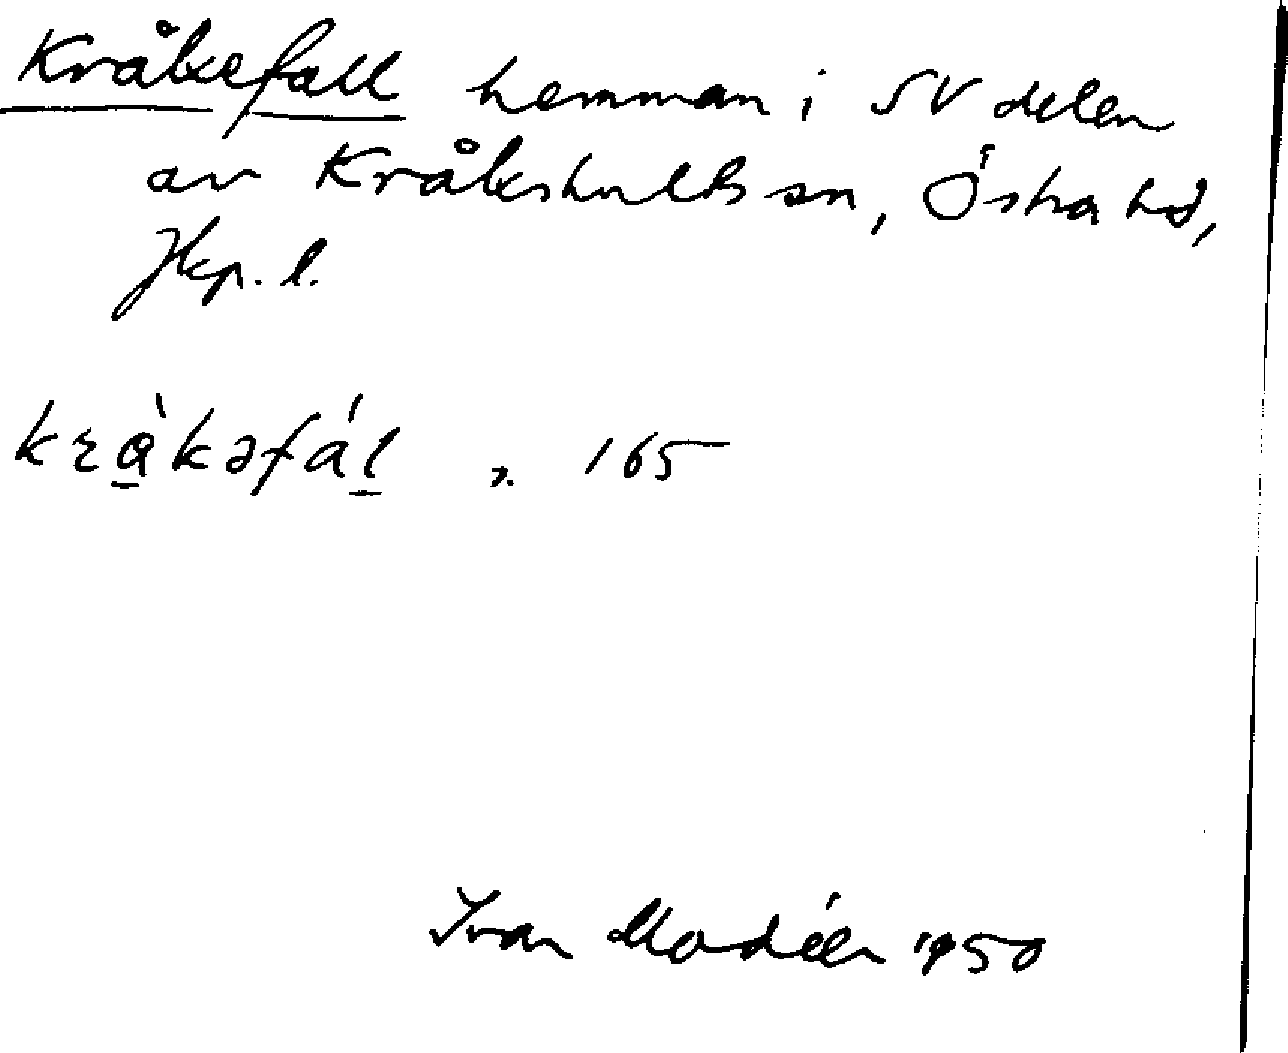 Kråkefall hemman i SV delen
av Kråkshults sn, Östra hd,
Jkp. l.
krà̱kəfáḻ s. 165
Ivar Modéer 1950